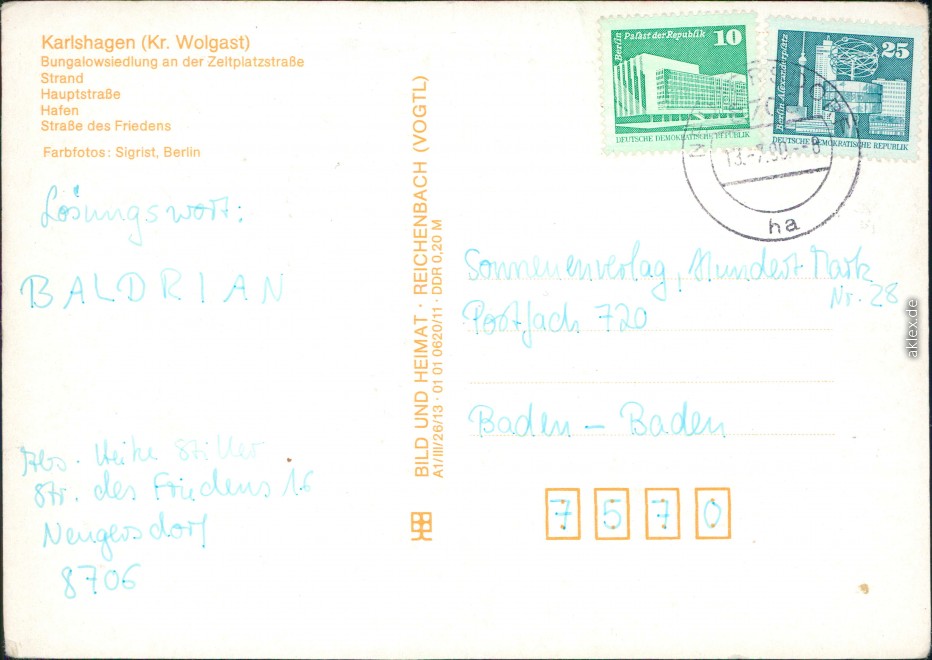 Karlshagen (Kr. Wolgast)
Bungalowsiedlung an der Zeltplatzstraße
Strand
Hauptstraße
Hafen
Straße des Friedens
Farbfotos: Sigrist, Berlin
Lösungswort:
BALDRIAN
Abs. Heike Stiller
Str. des Friedens 16
Neugersdorf
8706
BILD UND HEIMAT · REICHENBACH (VOGTL)
A1/III/26/13 · 01 01 0620/11 · DDR 0,20 M
Berlin Palast der Republik
10
DEUTSCHE DEMOKRATISCHE REPUBLIK
Berlin Alexanderplatz
25
DEUTSCHE DEMOKRATISCHE REPUBLIK
13.-7.90.--8
ha
Sonnenverlag, Hundert Mark
Nr. 28
Postfach 720
Baden - Baden
7570
aklex.de